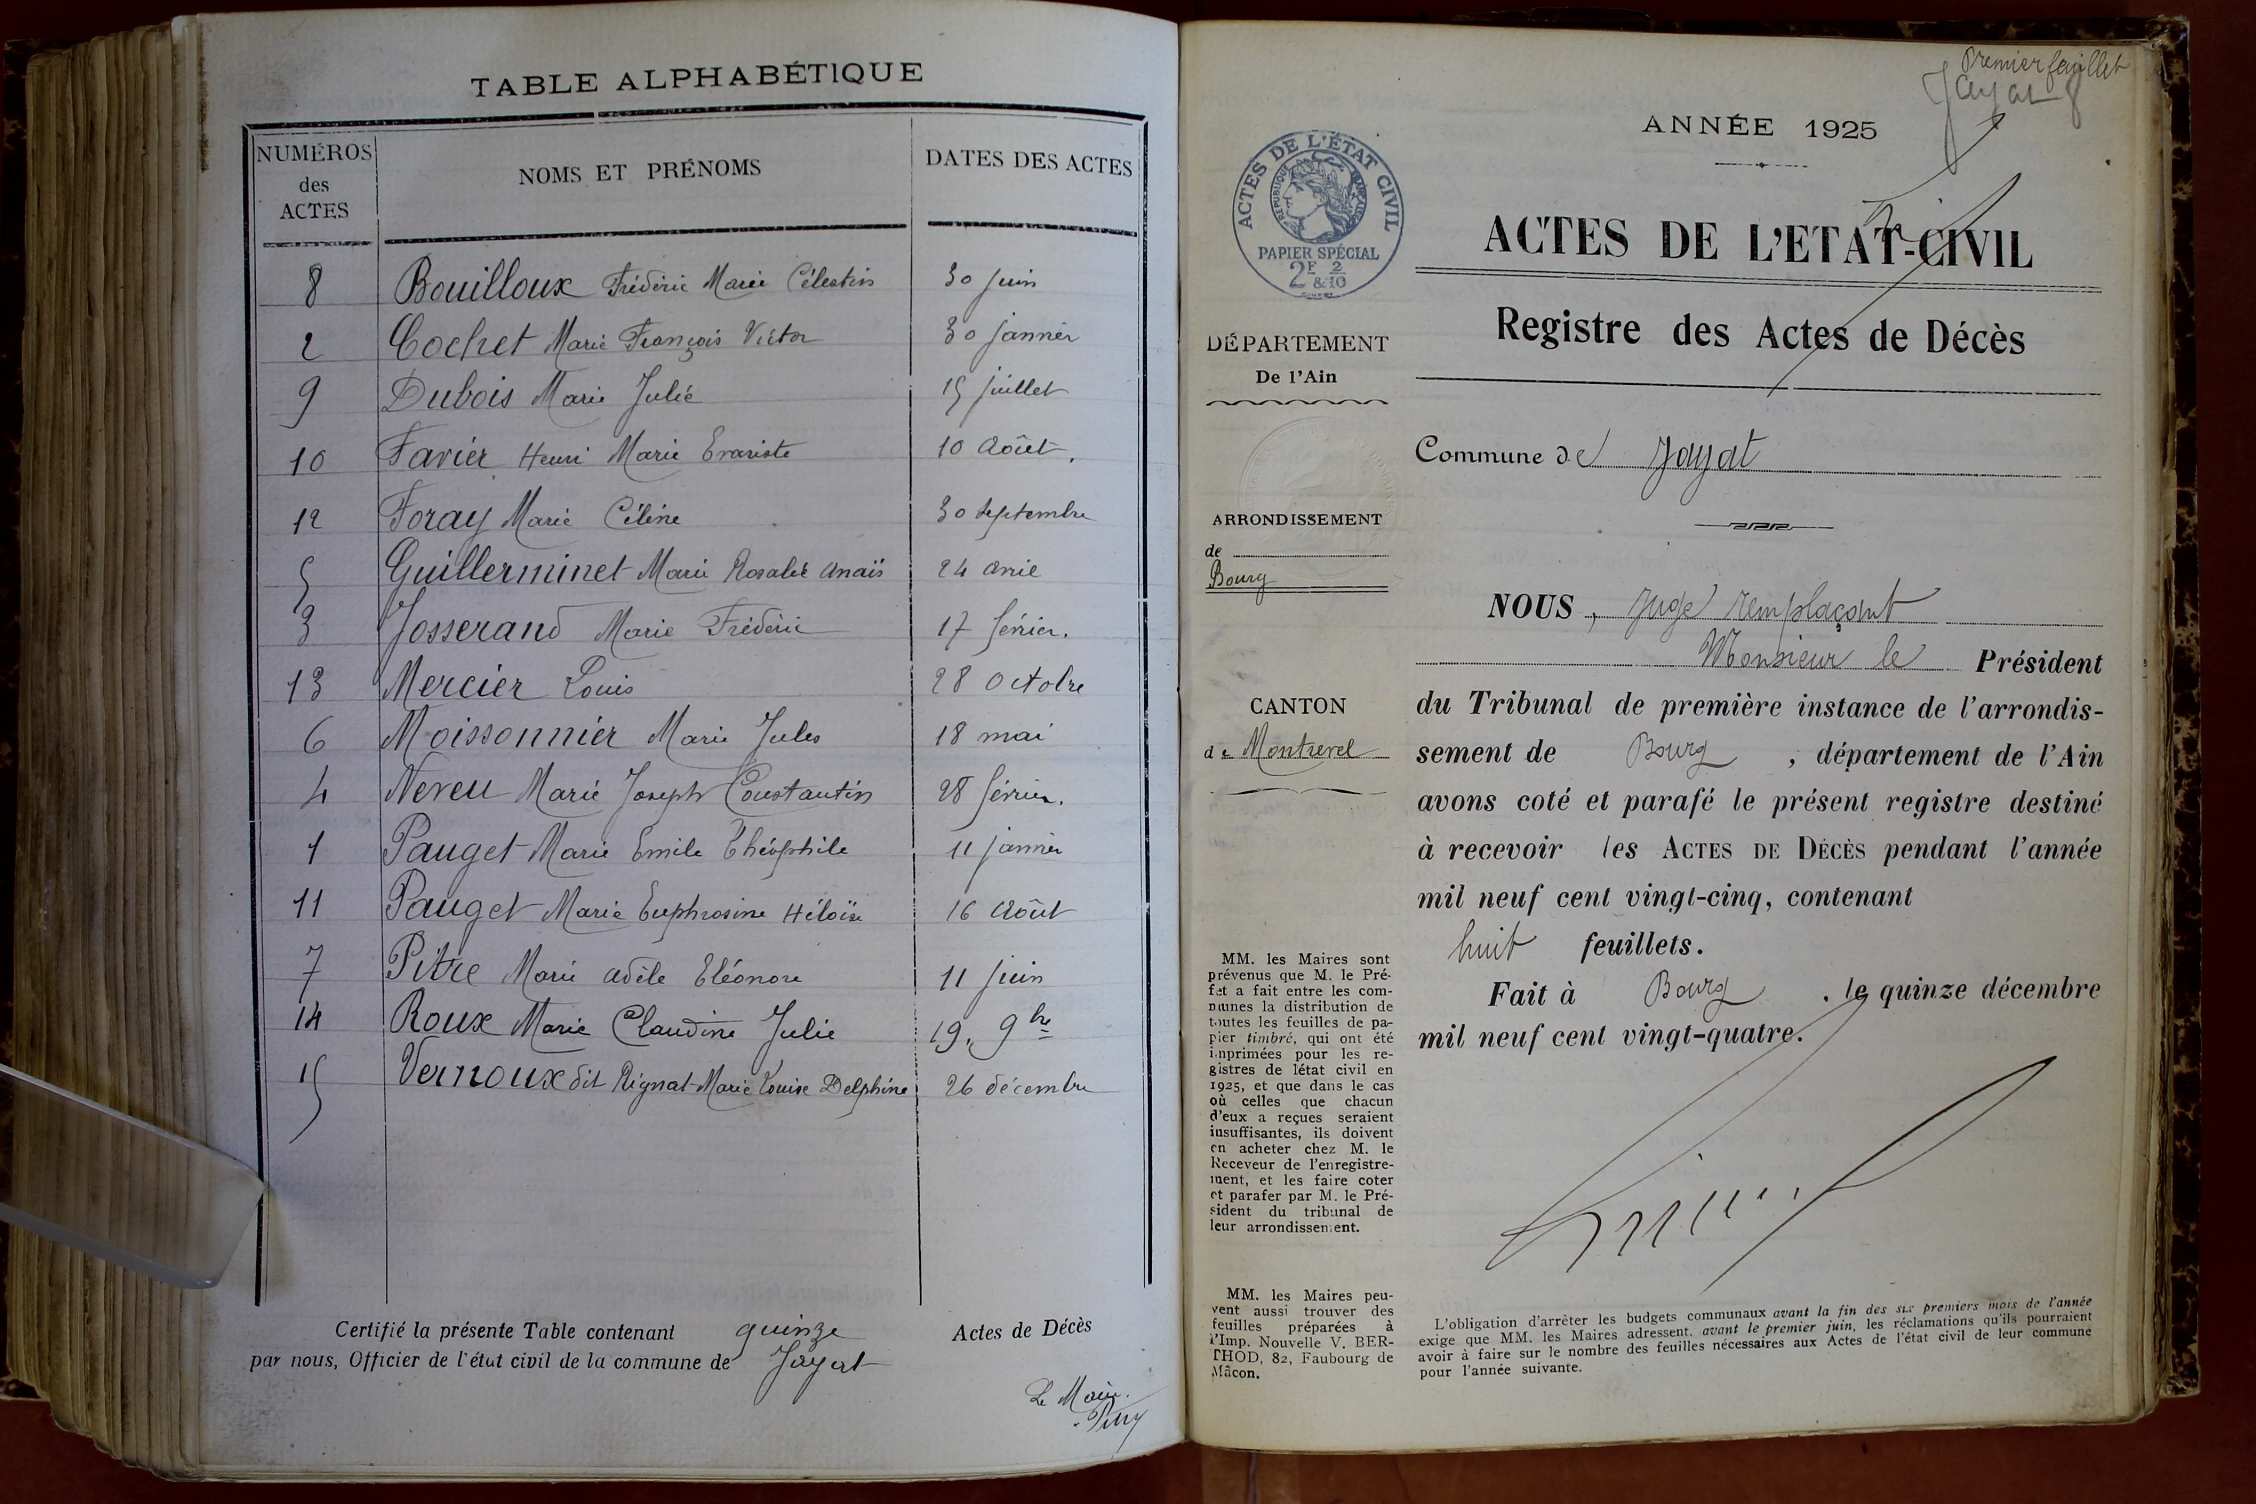 TABLE ALPHABÉTIQUE
NUMÉROS des ACTES NOMS ET PRÉNOMS DATES DES ACTES
8 Bouilloux Frédéric Marie Célestin 30 juin
2 Cochet Marie François Victor 30 janvier
9 Dubois Marie Julie 15 juillet
10 Favier Henri Marie Evariste 10 Août.
12 Foray Marie Céline 30 septembre
5 Guillerminet Marie Rosalie Anaïs 24 avril
3 Josserand Marie Frédéric 17 février.
13 Mercier Louis 28 octobre
6 Moissonnier Marie Jules 18 mai
4 Neveu Marie Joseph Constantin 28 février.
1 Pauget Marie Emile Théophile 11 janvier
11 Pauget Marie Euphrosine Héloïse 16 Août
7 Pitre Marie Adèle Eléonore 11 juin
14 Roux Marie Claudine Julie 19. 9bre
15 Vernoux dit Rignat Marie Louise Delphine 26 décembre
Certifié la présente Table contenant quinze Actes de Décès
par nous, Officier de l'état civil de la commune de Jayat
Le Maire.
Premier feuillet
Jayat 8
ANNÉE 1925
ACTES DE L'ÉTAT CIVIL
RÉPUBLIQUE FRANÇAISE
PAPIER SPÉCIAL
2F 2
&10
ACTES DE L'ETAT-CIVIL
Registre des Actes de Décès
DÉPARTEMENT
De l'Ain
Commune de Jayat
ARRONDISSEMENT
de
Bourg
CANTON
de Montrevel
NOUS, Juge remplaçant
Monsieur le Président
du Tribunal de première instance de l'arrondis-
sement de Bourg, département de l'Ain
avons coté et parafé le présent registre destiné
à recevoir les ACTES DE DÉCÈS pendant l'année
mil neuf cent vingt-cinq, contenant
huit feuillets.
Fait à Bourg. le quinze décembre
mil neuf cent vingt-quatre.
MM. les Maires sont
prévenus que M. le Pré-
fet a fait entre les com-
munes la distribution de
toutes les feuilles de pa-
pier timbré, qui ont été
imprimées pour les re-
gistres de létat civil en
1925, et que dans le cas
où celles que chacun
d'eux a reçues seraient
insuffisantes, ils doivent
en acheter chez M. le
Receveur de l'enregistre-
ment, et les faire coter
et parafer par M. le Pré-
sident du tribunal de
leur arrondissement.
MM. les Maires peu-
vent aussi trouver des
feuilles préparées à
l'Imp. Nouvelle V. BER-
THOD, 82, Faubourg de
Mâcon.
L'obligation d'arrêter les budgets communaux avant la fin des six premiers mois de l'année
exige que MM. les Maires adressent, avant le premier juin, les réclamations qu'ils pourraient
avoir à faire sur le nombre des feuilles nécessaires aux Actes de l'état civil de leur commune
pour l'année suivante.